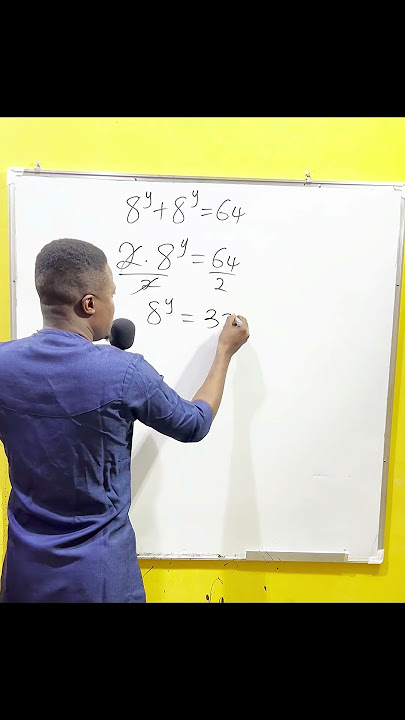 8^y + 8^y = 64
2 · 8^y / 2 = 64 / 2
8^y = 3